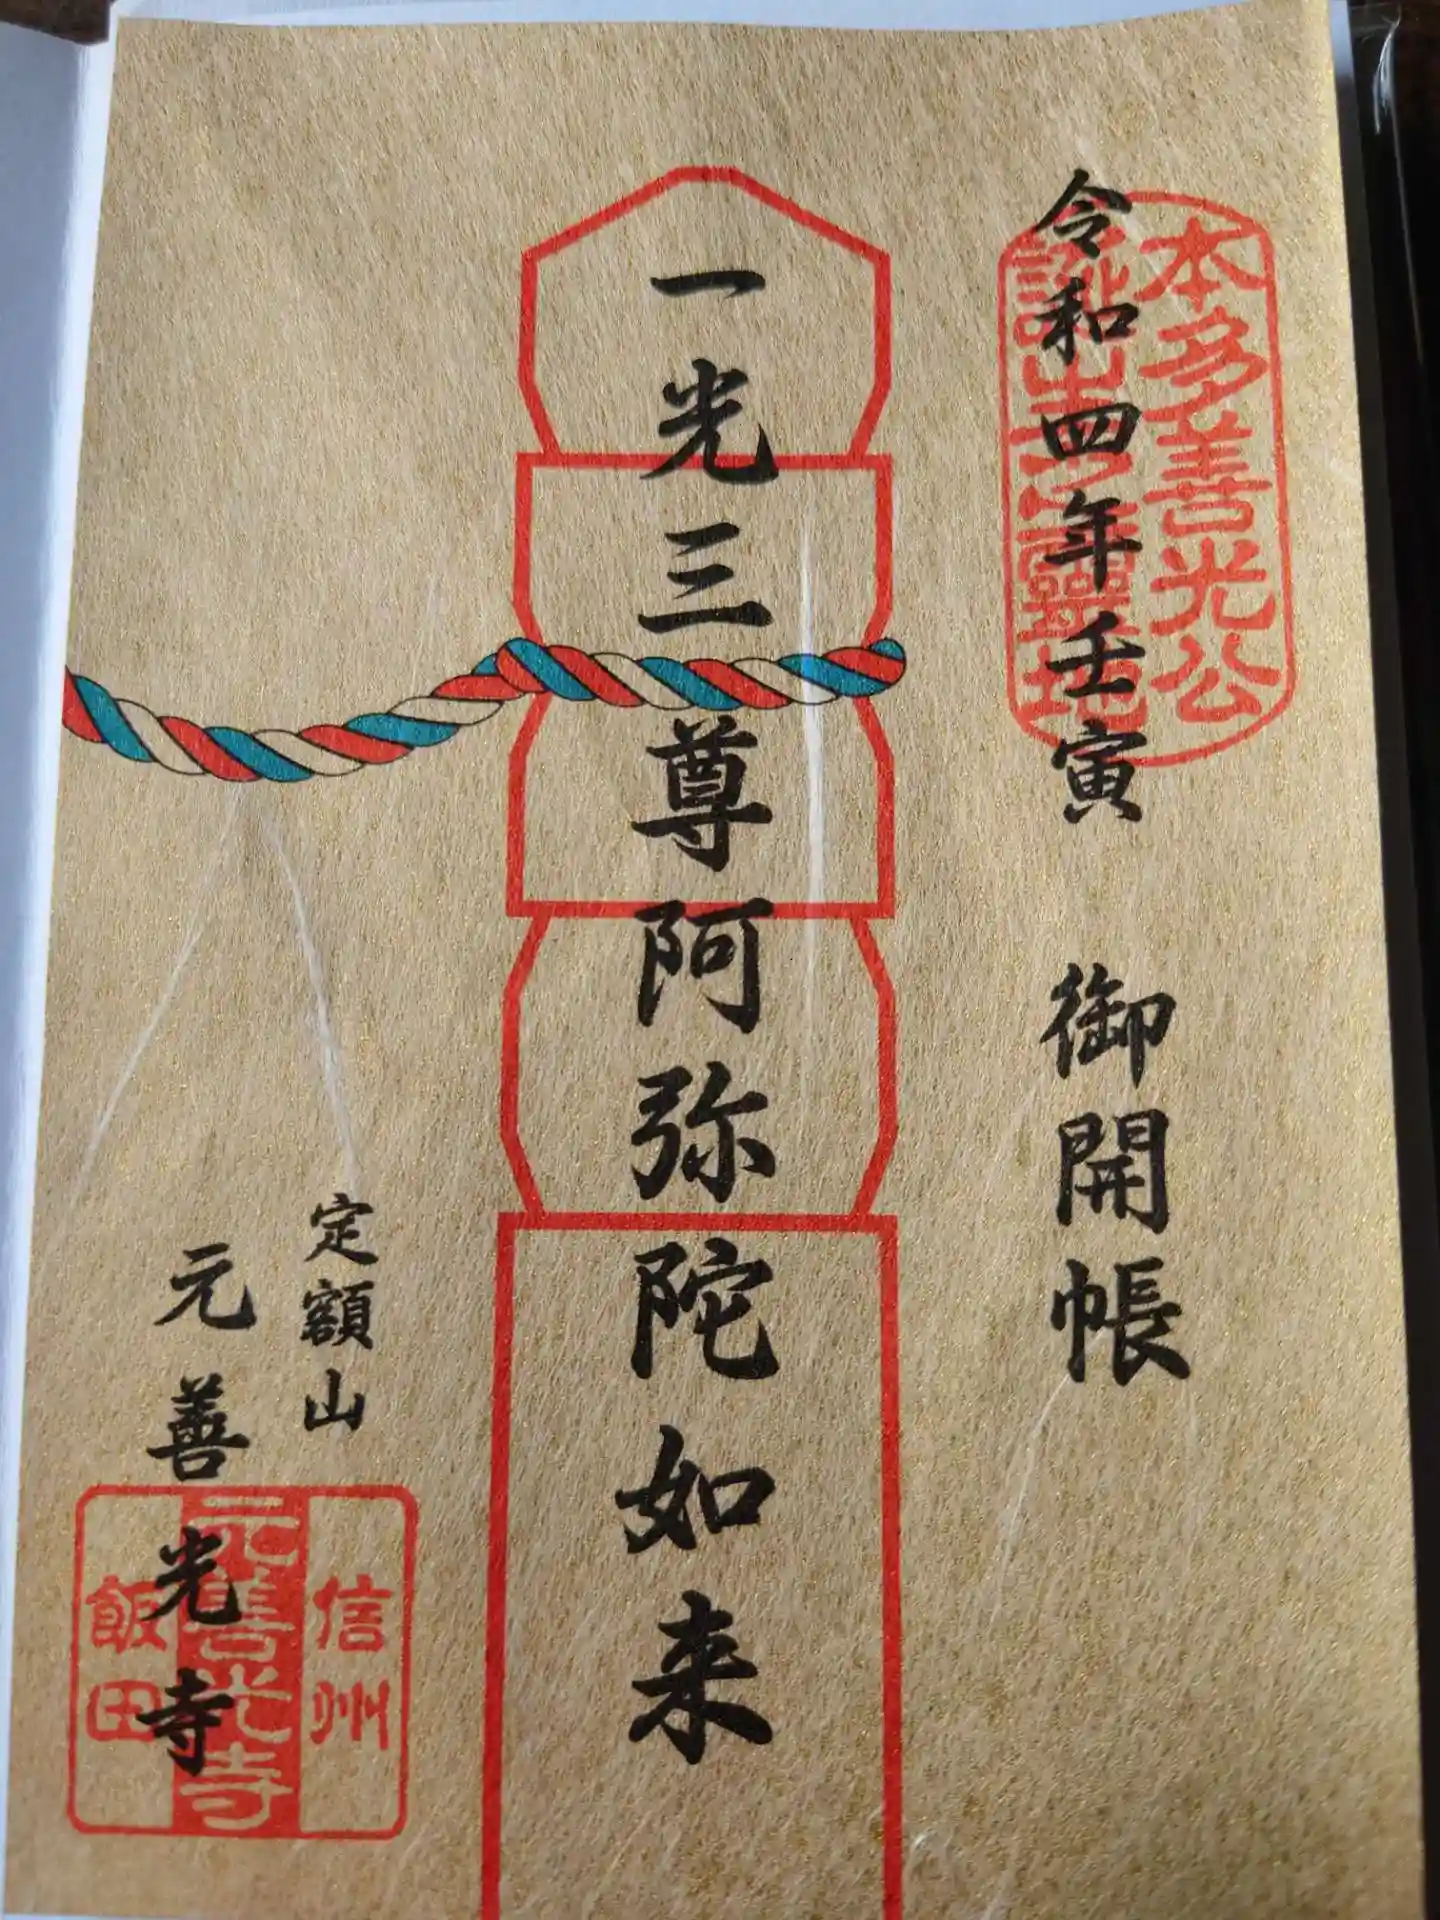 令和四年壬寅 御開帳
本多善光公
誕生寺霊地
一光三尊阿弥陀如来
定額山
元善光寺
信州
元善光寺
飯田